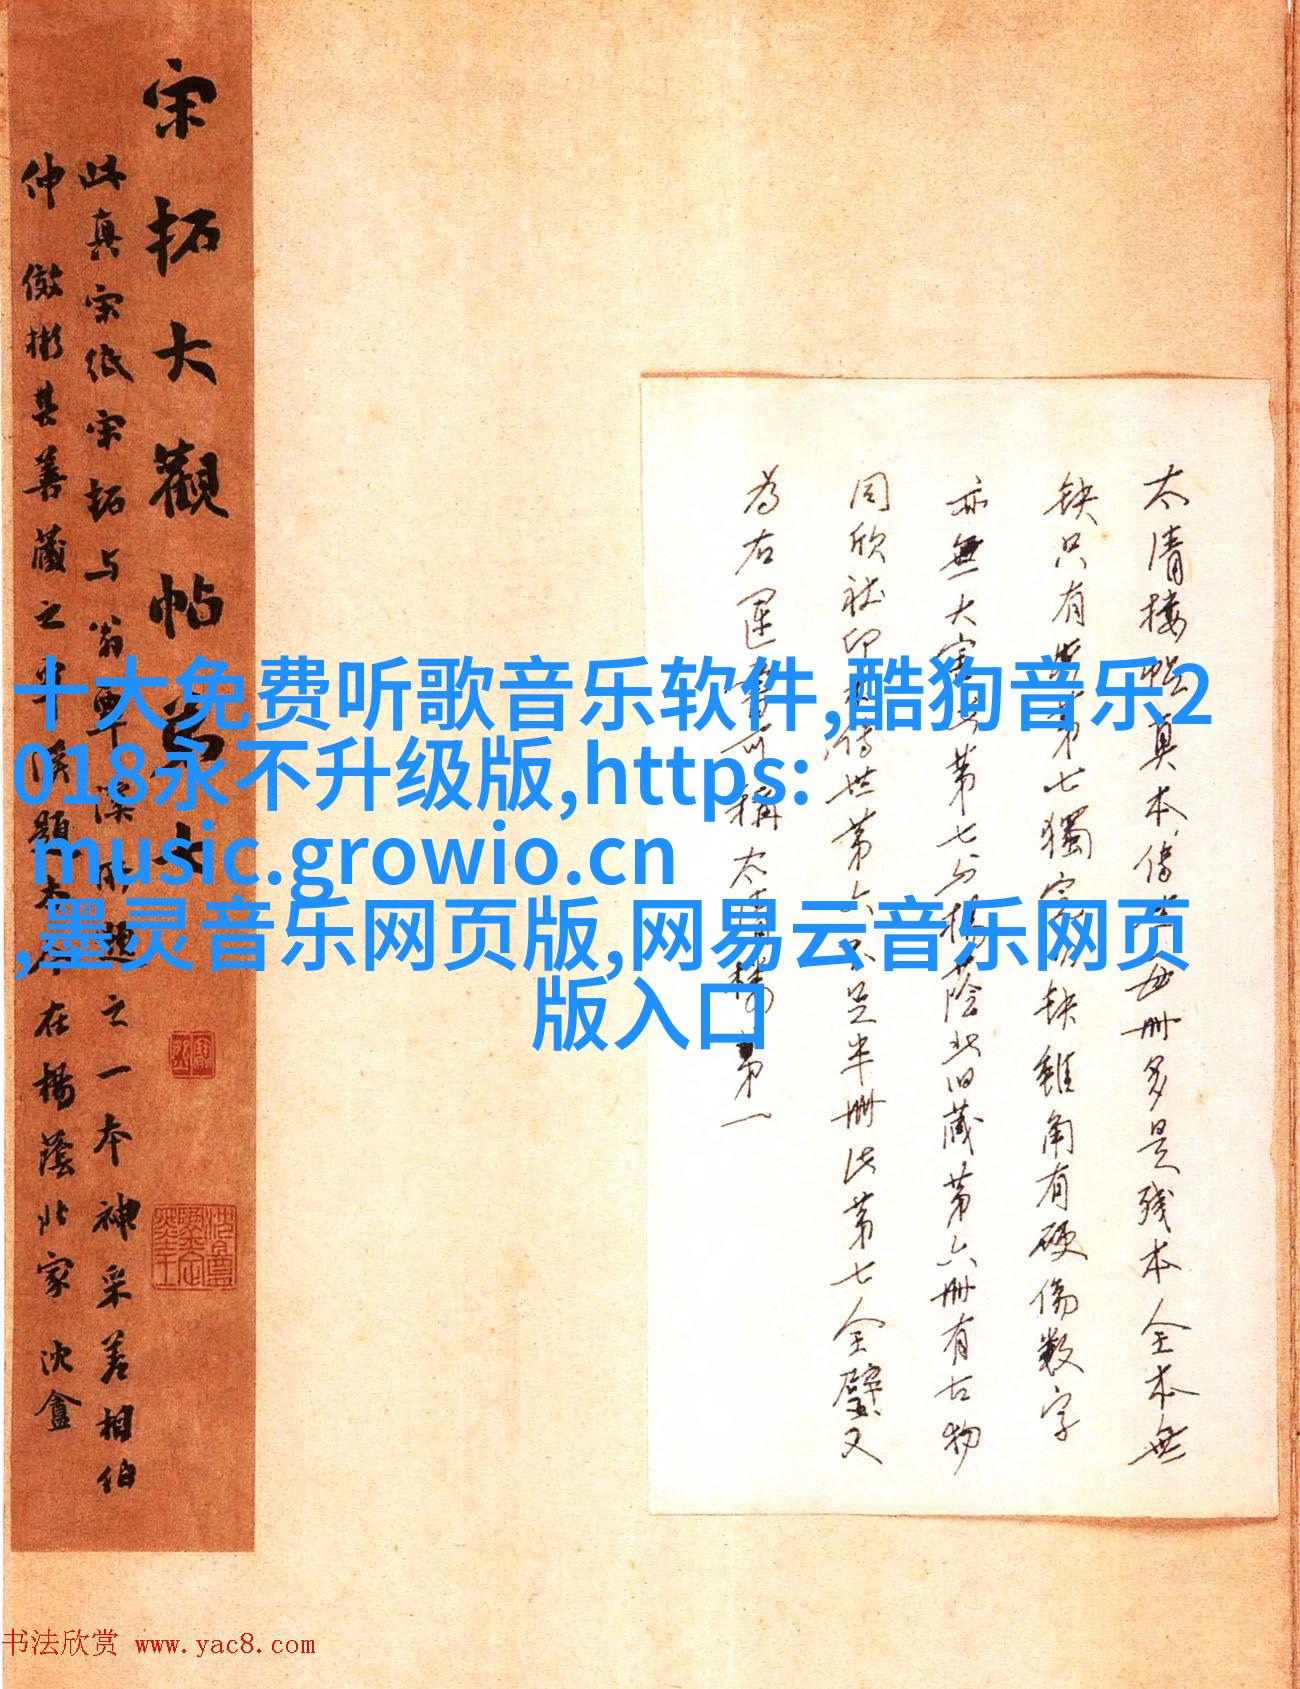 宋拓大觀帖
此真宋紙宋拓与翁覃溪所題之一本神采差相伯
仲儆彬其善藏之 題本今在楊蔭北家 沈盦
太清樓帖真本傳世每册多是殘本全本無
缺只有此第七獨完 缺雖角有硬傷數字
亦無大害 第七与楊蔭北旧藏第六册有古物
同欣社印本傳世第六只是半册此第七全璧又
為右軍書可稱太清樓第一
十大免费听歌音乐软件,酷狗音乐2
018永不升级版,https:
music.growio.cn
,墨灵音乐网页版,网易云音乐网页
版入口
书法欣赏 www.yac8.com